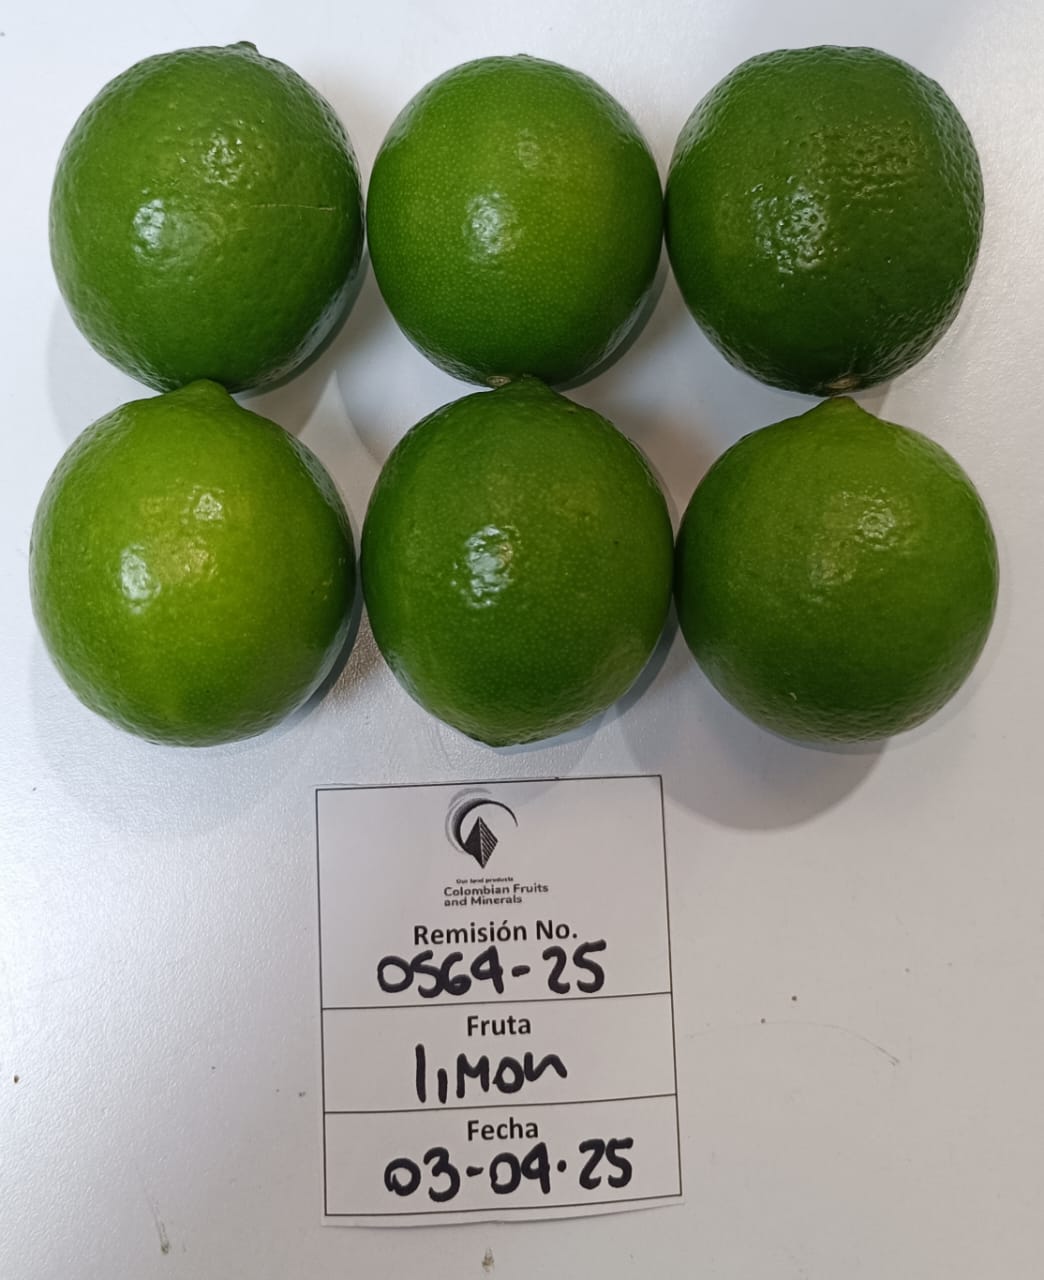 Our land products
Colombian Fruits
and Minerals
Remisión No.
0564-25
Fruta
limon
Fecha
03-04-25